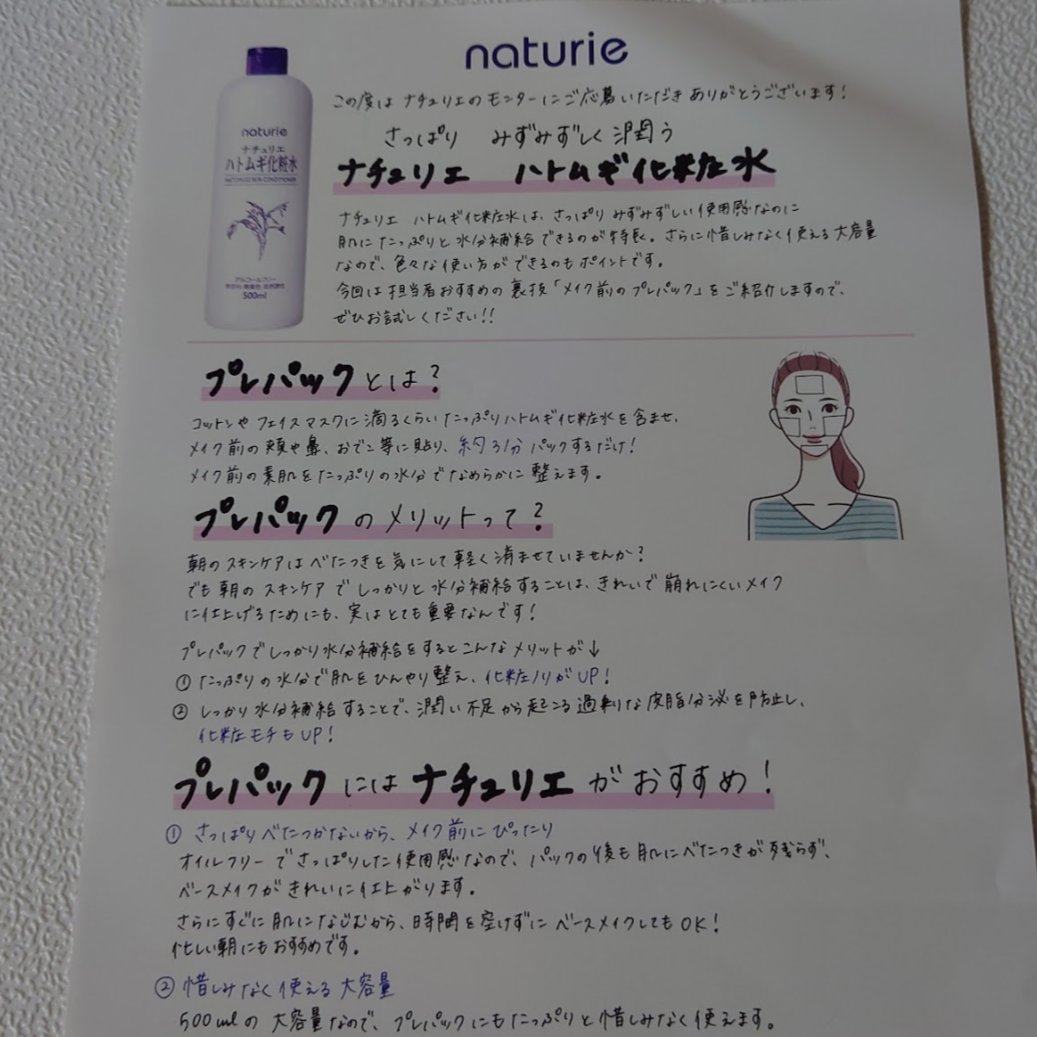 naturie
この度は ナチュリエのモニターにご応募いただき ありがとうございます!
さっぱり みずみずしく潤う
ナチュリエ ハトムギ化粧水
ナチュリエ ハトムギ化粧水は、さっぱり みずみずしい使用感なのに
肌にたっぷりと水分補給できるのが特長。さらに惜しみなく使える大容量
なので、色々な使い方ができるのもポイントです。
今回は担当者おすすめの裏技「メイク前のプレパック」をご紹介しますので、
ぜひお試しください!!
naturie
ナチュリエ
ハトムギ化粧水
HATOMUGI SKIN CONDITIONER
アルコールフリー
無香料・無着色・低刺激性
500ml
プレパックとは?
コットンやフェイスマスクに滴るくらいたっぷりハトムギ化粧水を含ませ、
メイク前の頬や鼻、おでこ等に貼り、約3分パックするだけ!
メイク前の素肌をたっぷりの水分でなめらかに整えます。
プレパックのメリットって?
朝のスキンケアはべたつきを気にして軽く済ませていませんか?
でも朝のスキンケアでしっかりと水分補給することは、きれいで崩れにくいメイク
に仕上げるためにも、実はとても重要なんです!
プレパックでしっかり水分補給をするとこんなメリットが↓
① たっぷりの水分で肌をひんやり整え、化粧ノリがUP!
② しっかり水分補給することで、潤い不足から起こる過剰な皮脂分泌を防止し、
化粧モチもUP!
プレパックにはナチュリエがおすすめ!
① さっぱりべたつかないから、メイク前にぴったり
オイルフリーでさっぱりした使用感なので、パックの後も肌にべたつきが残らず、
ベースメイクがきれいに仕上がります。
さらにすぐに肌になじむから、時間を空けずにベースメイクしてもOK!
忙しい朝にもおすすめです。
② 惜しみなく使える大容量
500mlの大容量なので、プレパックにもたっぷりと惜しみなく使えます。